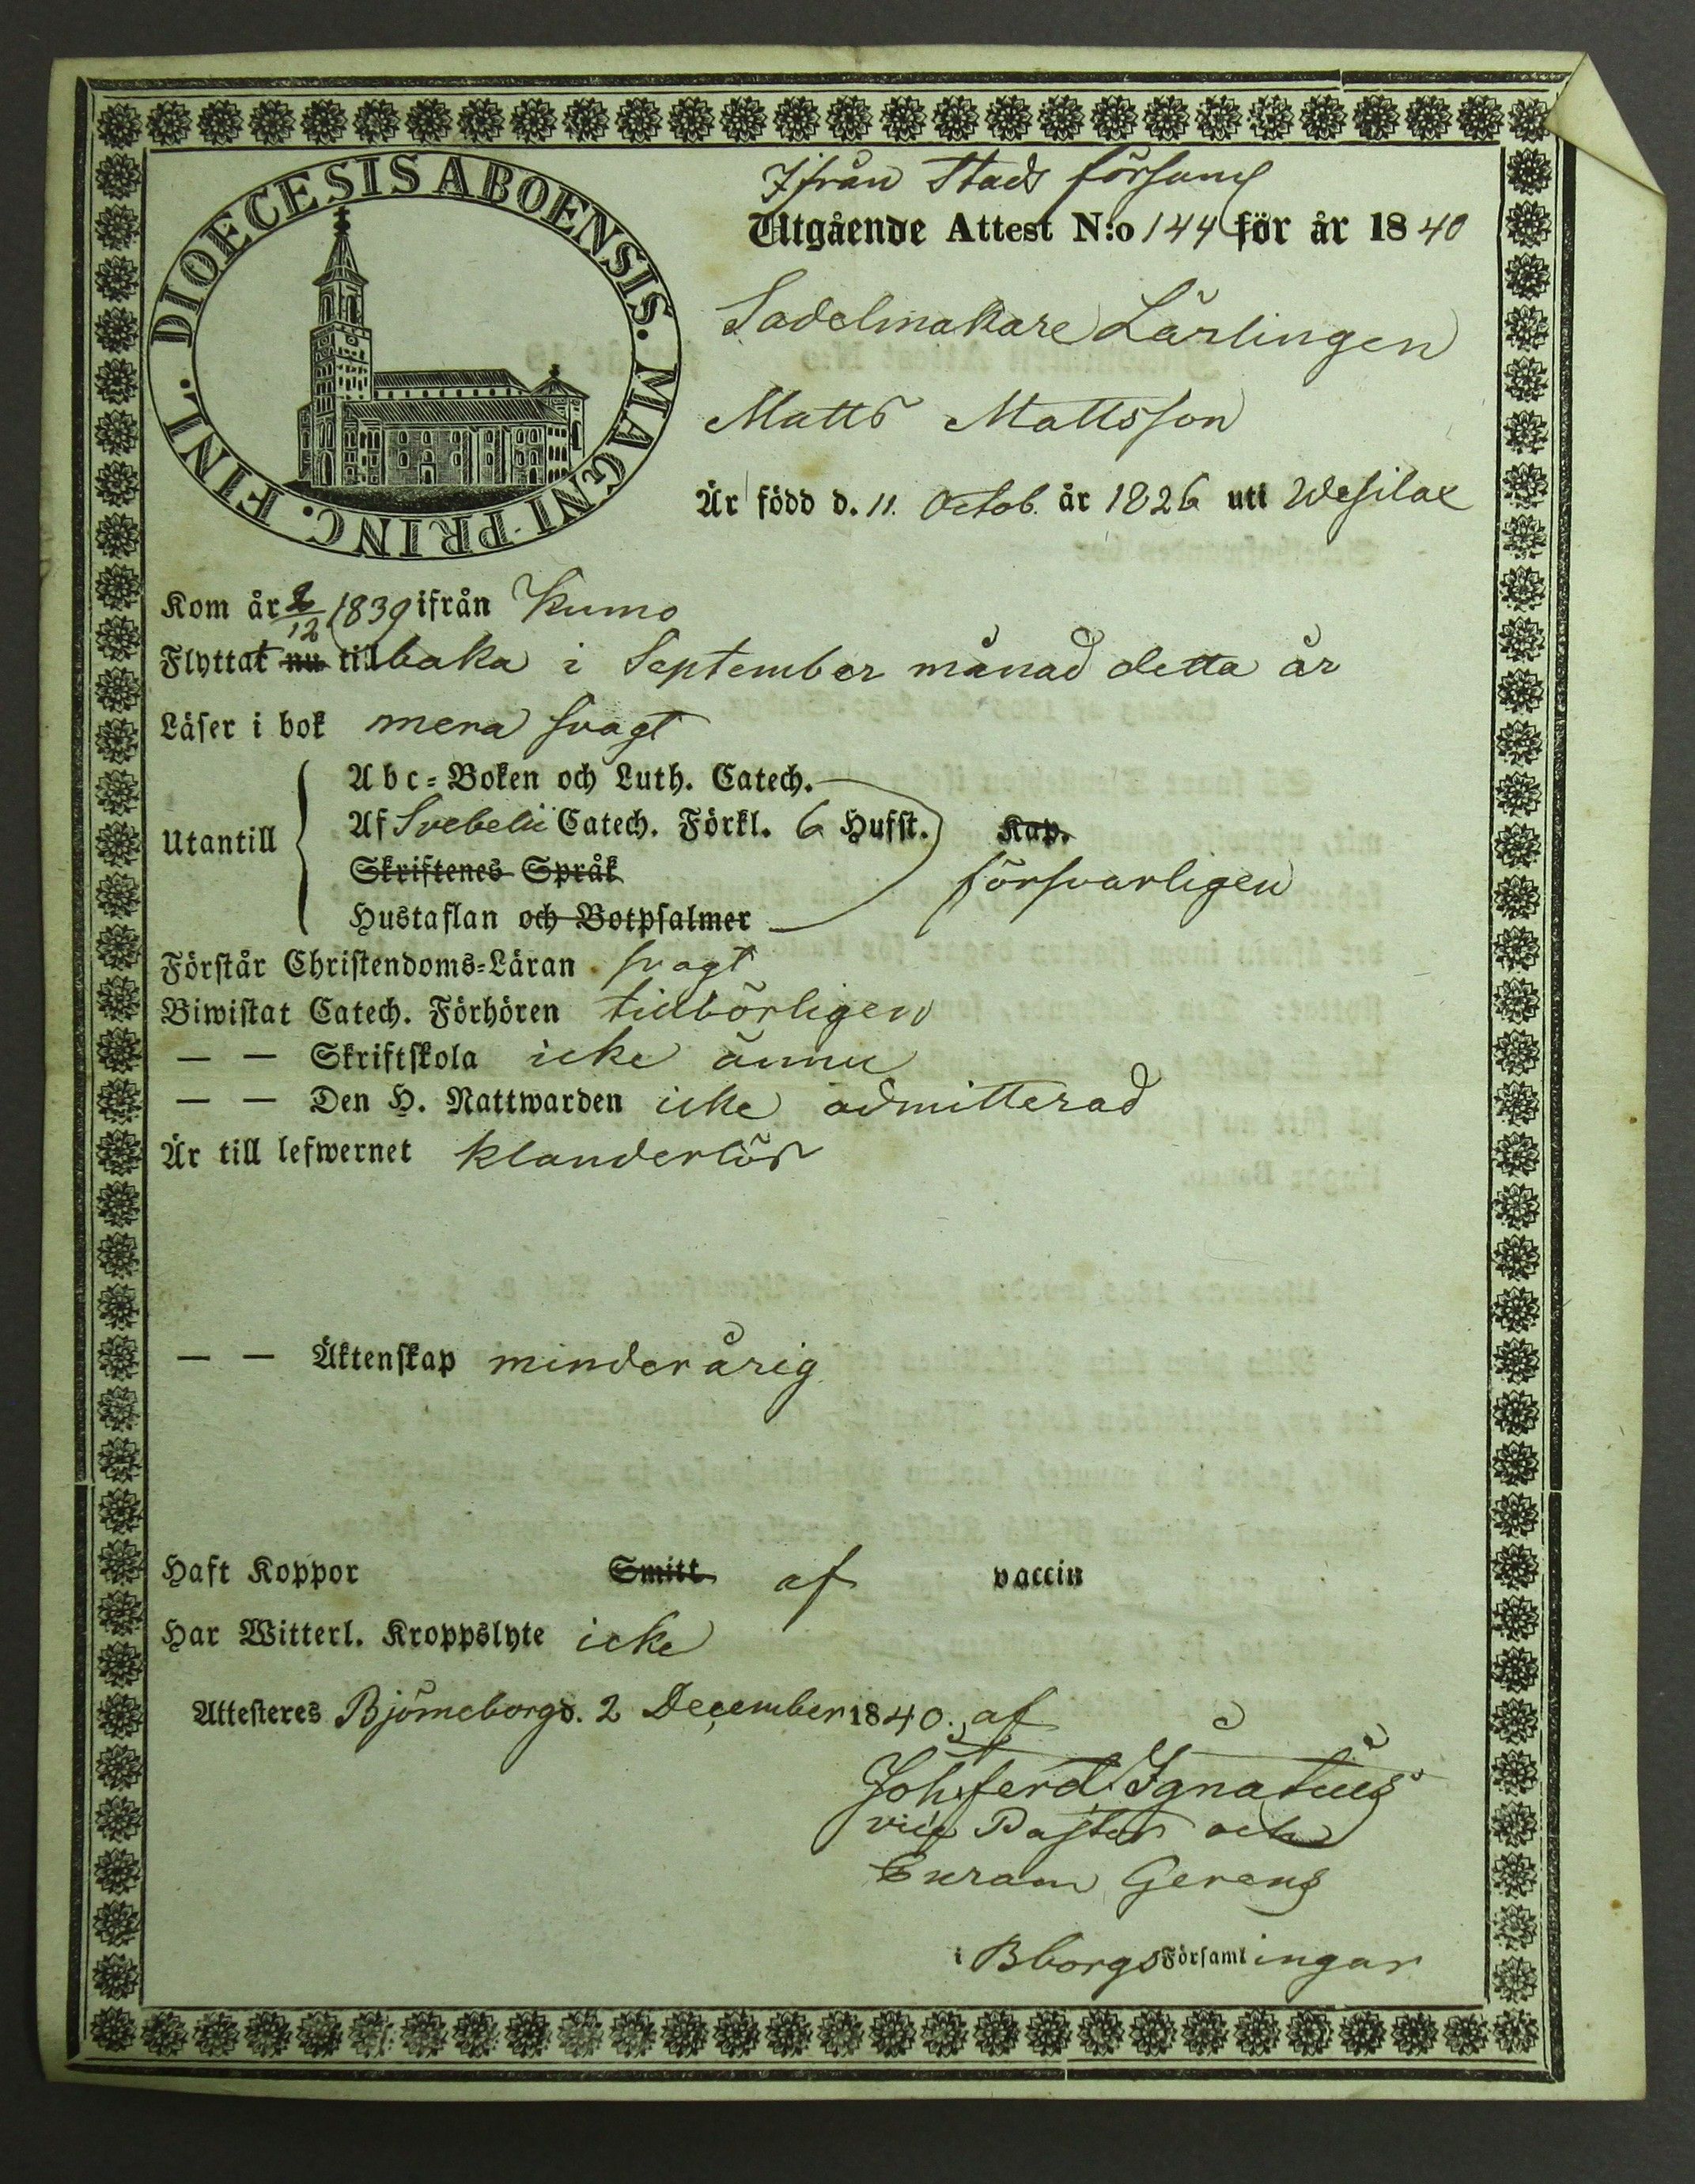 DIOECESIS ABOENSIS. MAGNI PRINC. FINL.
Ifrån Stads förs
Utgående Attest N:o 144 för år 1840
Sadelmakare Lärlingen
Matts Mattsson
Är född d. 11. Octob. år 1826 uti Wesilax
Kom år 2/12 1839 ifrån Kumo
Flyttat nu tillbaka i September månad detta år
Läser i bok mera svagt
Abc-Boken och Luth. Catech.
Utantill Af Svebelii Catech. Förkl. 6 Hufst. Kap.
Skriftenes Språk försvarligen
Hustaflan och Botpsalmer
Förstår Christendoms-Läran svagt
Biwistat Catech. Förhören tillbörligen
— — Skriftskola icke ännu
— — Den H. Nattwarden icke admitterad
Är till lefwernet klanderlös
— — Äktenskap minderårig
Haft Koppor Smitt af vaccin
Har Witterl. Kroppslyte icke
Attesteres Björneborg d. 2 December 1840. af
Joh. Ferd. Ignatius
vice Pastor och
Curam Gerens
i Bborgs Församlingar